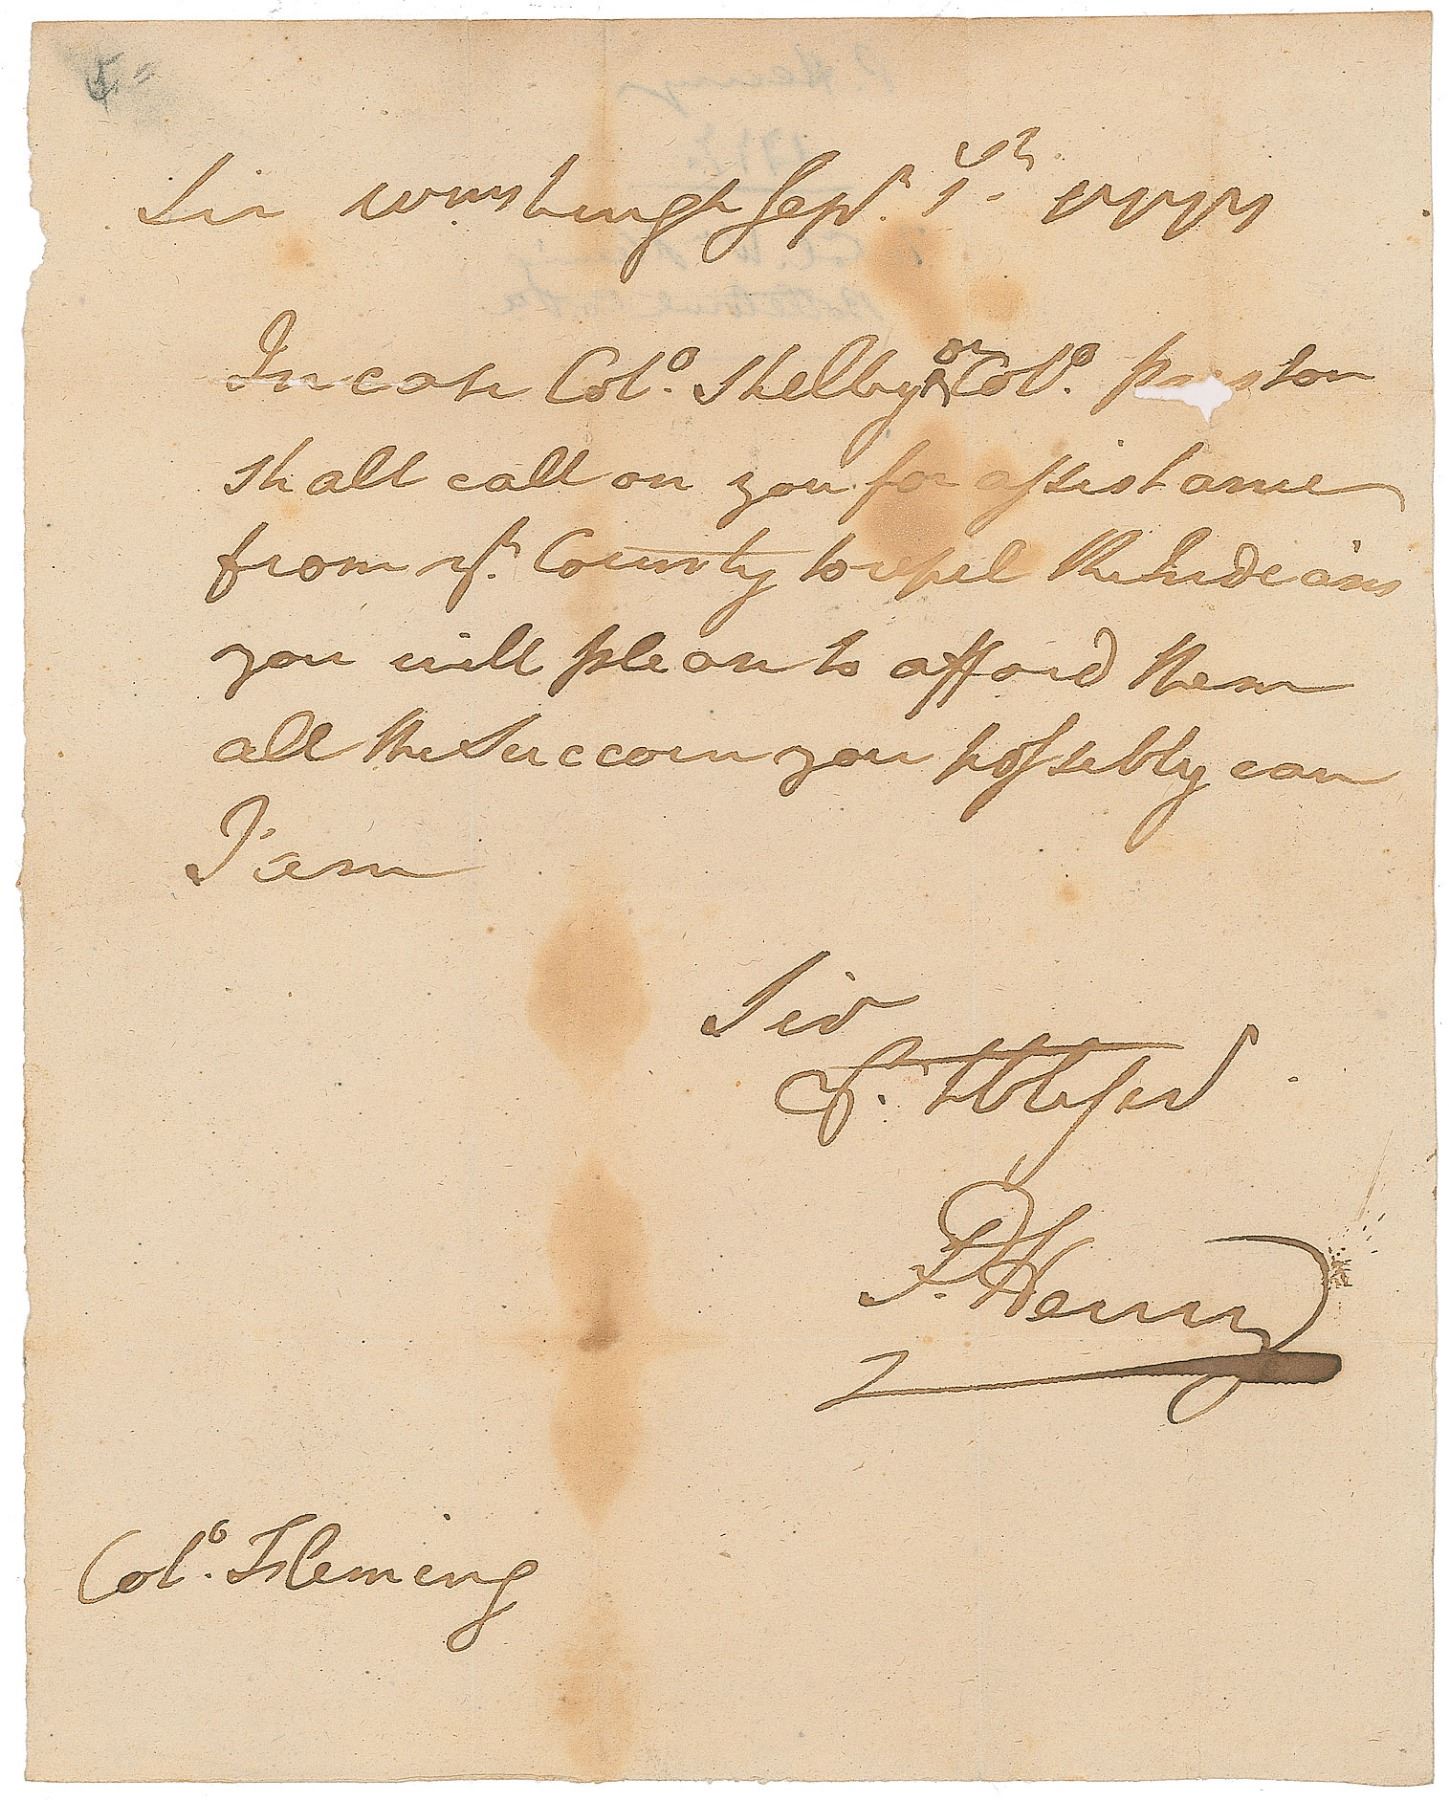 Sir Wmsburgh Sepr. 5th. 1777
In case Colo. Shelby or Colo. Preston
shall call on you for assistance
from yr. County to repel the Indians
you will please to afford them
all the Succour you possibly can
I am
Sir
Yr. Hble Ser
P. Henry
Colo. Fleming